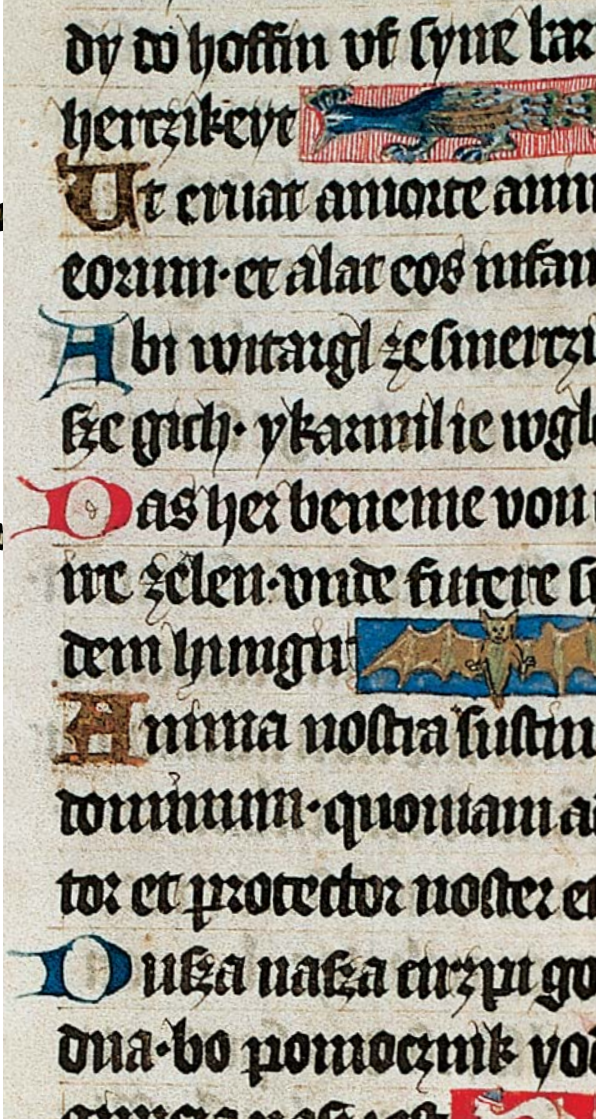 dy do hoffin vf syne bar
hertzikeyt
Ut eruat amorte anim
eorum·et alat eos infam
Abi witargl zesmertzi
sze gich· ykarmil ie wgl
Das her beneme von
ire zelen·vnde futere s
dem hungir
Anima nostra sustin
dominum·quoniam a
tor et protector noster e
Dusza nasza cirzpi go
dna·bo pomocznik yo